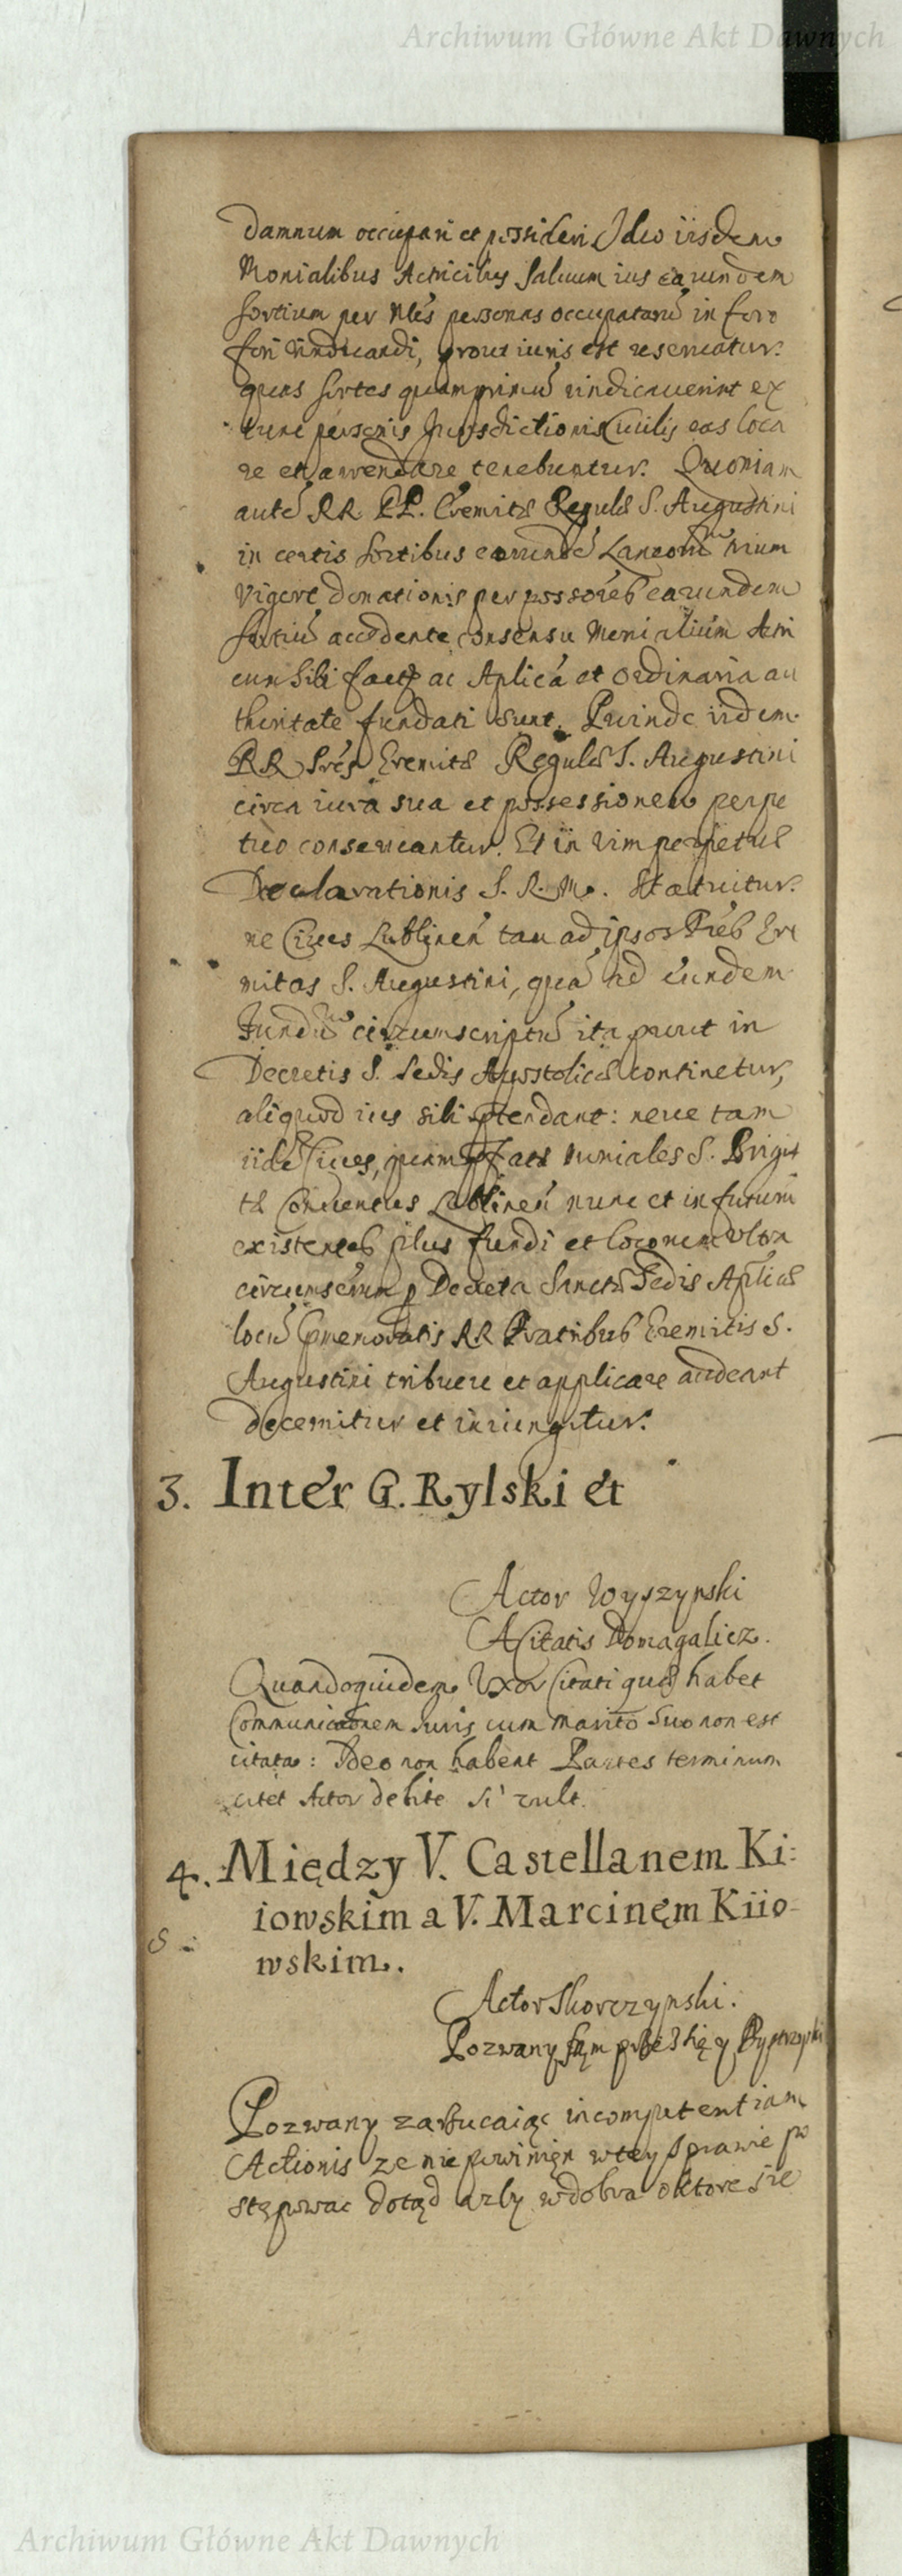 Archiwum Główne Akt Dawnych
damnum occupari et possideri Ideo iisdem
Monialibus Actricibus salvum ius earundem
sortium per Nles personas occupatarū in foro
fori vindicandi, prout iuris est reservatur.
quas sortes quamprimū vindicaverint ex
tunc personis Jurisdictionis Civilis eas loca
re et arrendare tenebuntur. Quoniam
autē RR PP. Eremitæ Regulæ S. Augustini
in certis sortibus eorundē Laneorū trium
vigore donationis per possores earundem
sortiū accedente consensu Monialium Actri
cum sibi factæ ac Aplica et Ordinaria au
thoritate fundati sunt. Proinde iidem
RR Fres Eremitæ Regulæ S. Augustini
circa iura sua et possessionem perpe
tuo conserventur. Et in vim perpetuæ
Declarationis S. R. M. Statuitur.
ne Cives Lublinen tam ad ipsos Freb Ere
mitas S. Augustini, quā ad eundem
Fundū circumscriptū ita prout in
Decretis S. Sedis Apostolicæ continetur,
aliquod ius sibi ptendant: neve tam
iidē Cives, quam pfatæ Moniales S. Brigit
tæ Conventus Lublinen nunc et in futurū
existentes plus fundi et locorum ultra
circumscrium p Decreta Sanctæ Sedis Aplicæ
locū pmenovatis RR Fratribus Eremitis S.
Augustini tribuere et applicare audeant
decernitur et iniungitur.
3. Inter G. Rylski et
Actor Wyszynski
A Citatis Domagalicz.
Quandoquidem Uxor Citati quæ habet
Communicaonem iuris cum marito suo non est
citata: Ideo non habent Partes terminum
citet Actor debite si vult.
4. Między V. Castellanem Ki:
iowskim a V. Marcinęm Kiio-
wskim.
Actor Skorczynski.
Pozwany sąm przez się y
Pozwany zarzucaiąc incompetentiam
Actionis ze nie powinięn wtey sprawie po
stępowac dotąd azby wdobra oktore się
Archiwum Główne Akt Dawnych